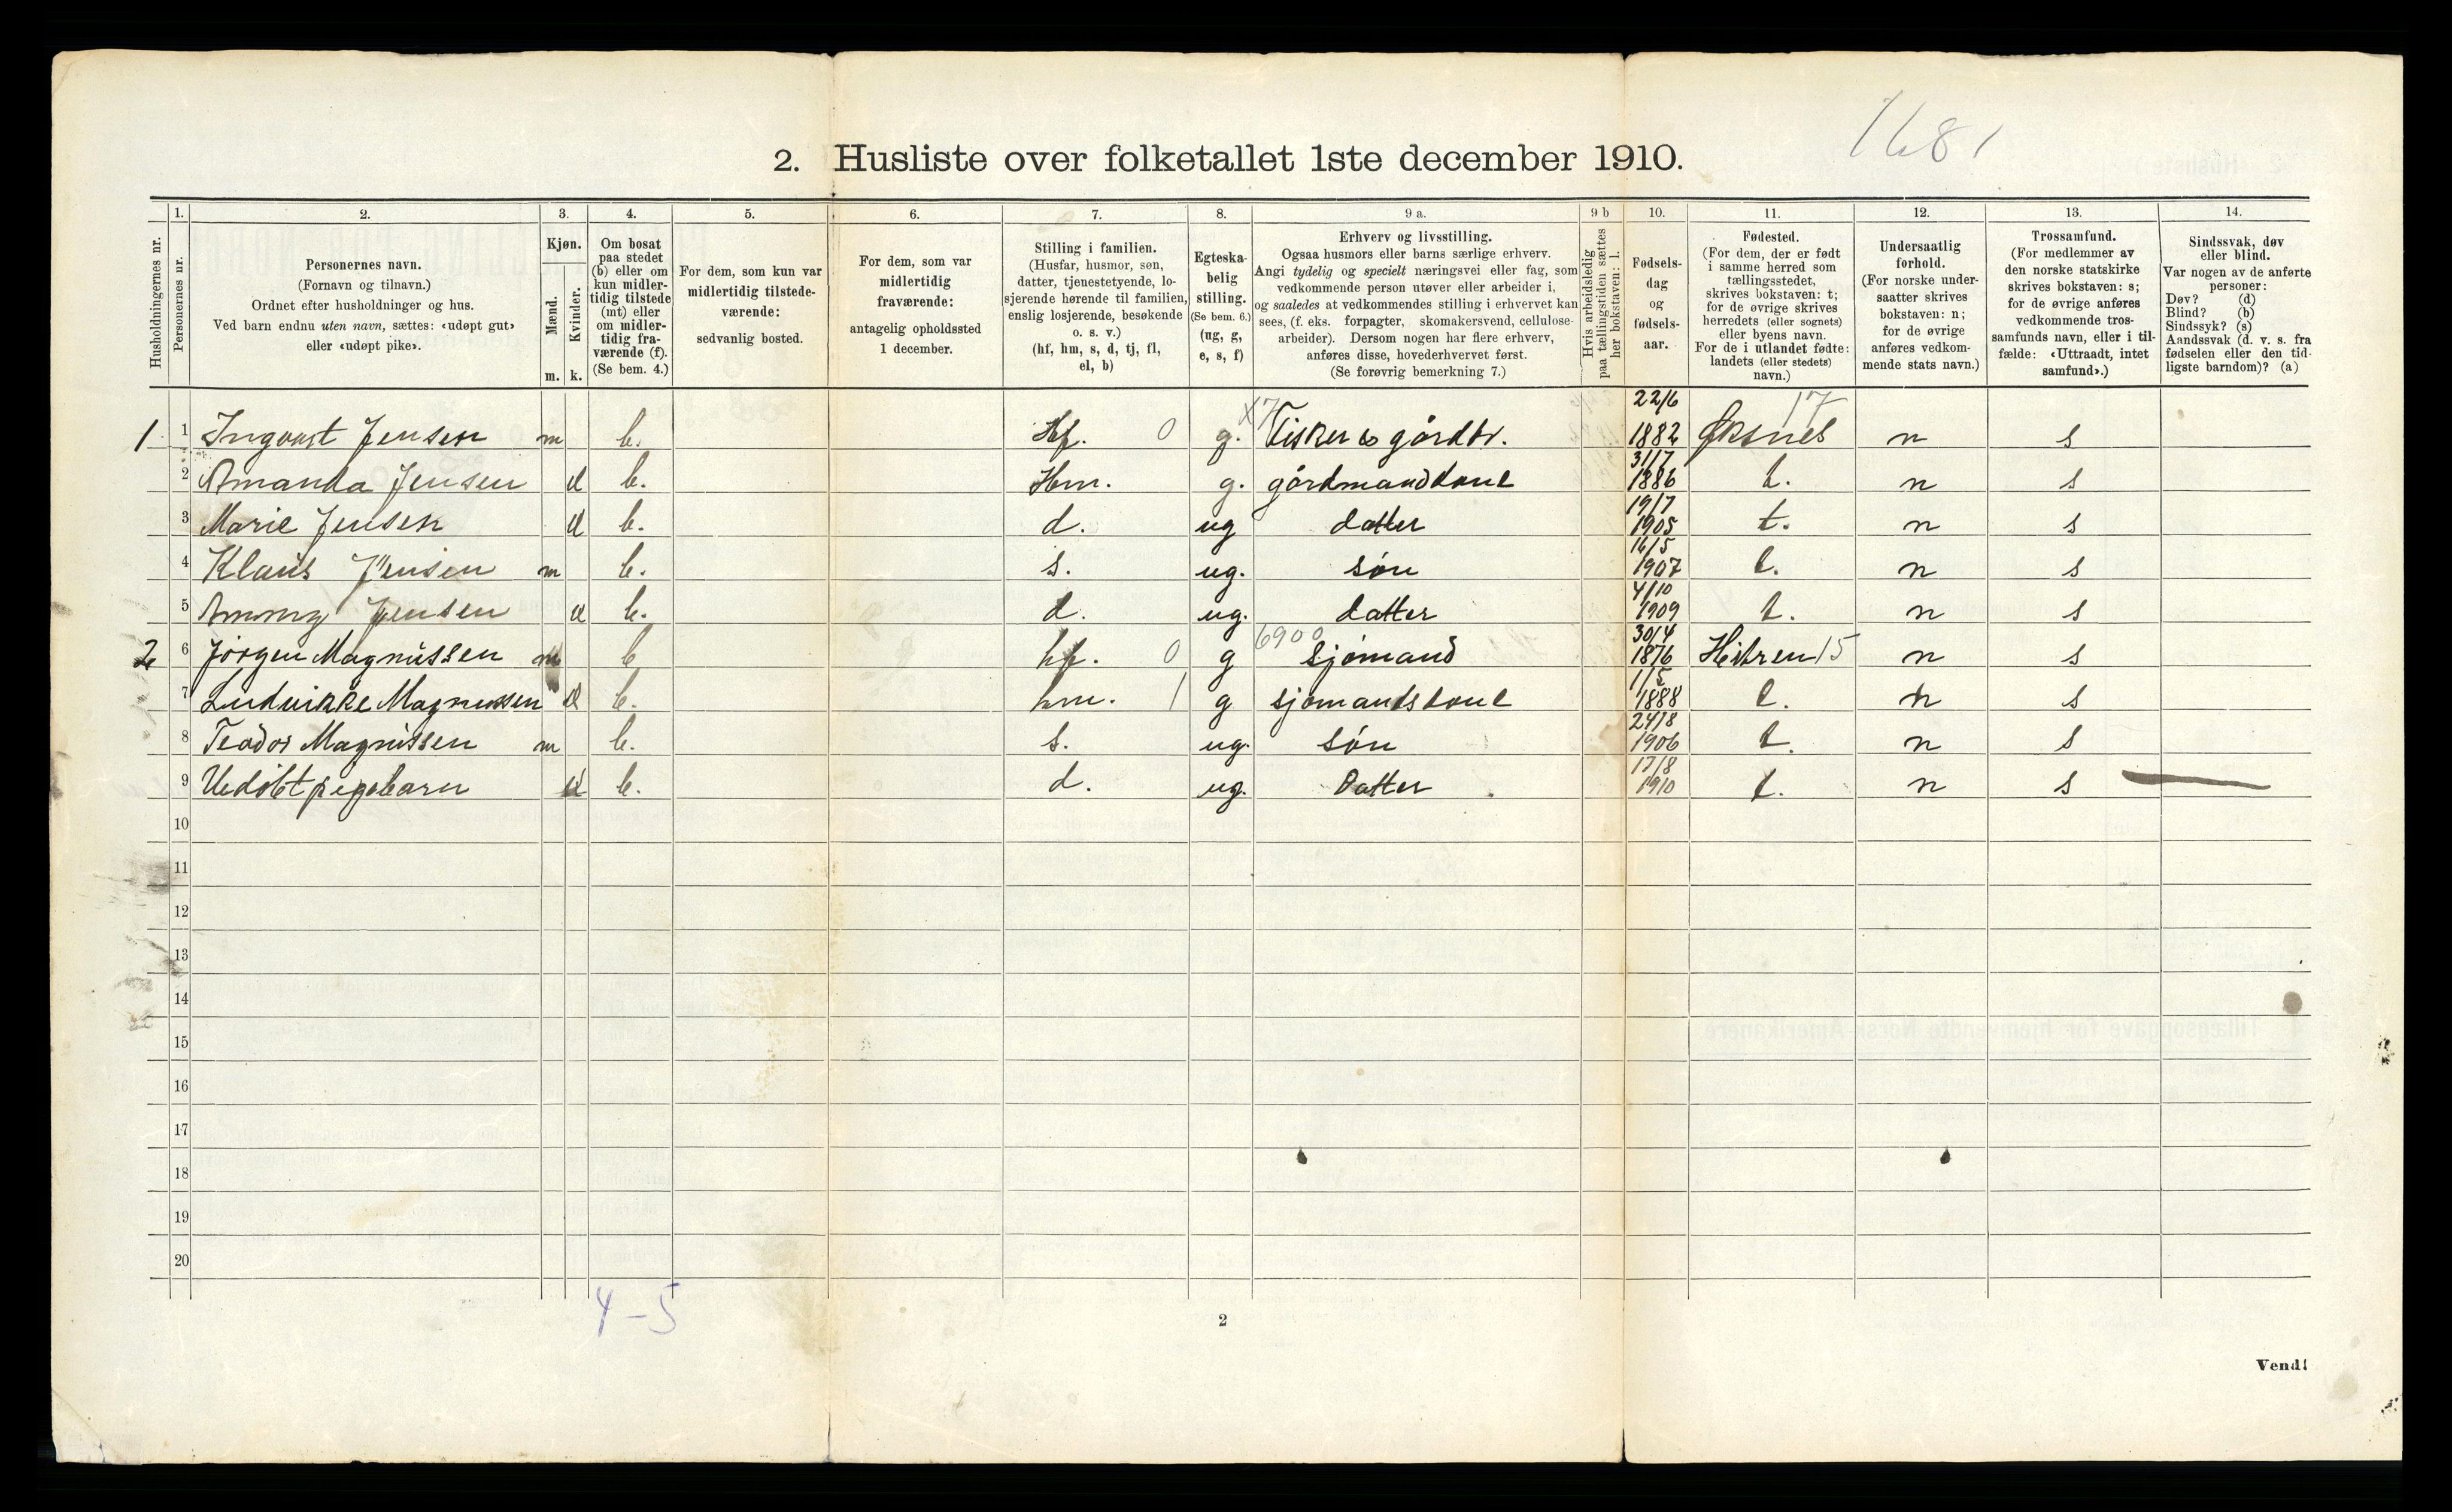 1681
2. Husliste over folketallet 1ste december 1910.
Husholdningernes nr.
1.
Personernes nr.
2.
Personernes navn.
(Fornavn og tilnavn.)
Ordnet efter husholdninger og hus.
Ved barn endnu uten navn, sættes: «udøpt gut»
eller «udøpt pike».
3.
Kjøn.
Mænd.
Kvinder.
m. k.
4.
Om bosat
paa stedet
(b) eller om
kun midler-
tidig tilstede
(mt) eller
om midler-
tidig fra-
værende (f).
(Se bem. 4.)
5.
For dem, som kun var
midlertidig tilstede-
værende:
sedvanlig bosted.
6.
For dem, som var
midlertidig
fraværende:
antagelig opholdssted
1 december.
7.
Stilling i familien.
(Husfar, husmor, søn,
datter, tjenestetyende, lo-
sjerende hørende til familien,
enslig losjerende, besøkende
o. s. v.)
(hf, hm, s, d, tj, fl,
el, b)
8.
Egteska-
belig
stilling.
(Se bem. 6.)
(ug, g,
e, s, f)
9 a.
Erhverv og livsstilling.
Ogsaa husmors eller barns særlige erhverv.
Angi tydelig og specielt næringsvei eller fag, som
vedkommende person utøver eller arbeider i,
og saaledes at vedkommendes stilling i erhvervet kan
sees, (f. eks. forpagter, skomakersvend, cellulose-
arbeider). Dersom nogen har flere erhverv,
anføres disse, hovederhvervet først.
(Se forøvrig bemerkning 7.)
9 b
Hvis arbeidsledig
paa tællingstiden sættes
her bokstaven: l.
10.
Fødsels-
dag
og
fødsels-
aar.
11.
Fødested.
(For dem, der er født
i samme herred som
tællingsstedet,
skrives bokstaven: t;
for de øvrige skrives
herredets (eller sognets)
eller byens navn.
For de i utlandet fødte:
landets (eller stedets)
navn.)
12.
Undersaatlig
forhold.
(For norske under-
saatter skrives
bokstaven: n;
for de øvrige
anføres vedkom-
mende stats navn.)
13.
Trossamfund.
(For medlemmer av
den norske statskirke
skrives bokstaven: s;
for de øvrige anføres
vedkommende tros-
samfunds navn, eller i til-
fælde: «Uttraadt, intet
samfund».)
14.
Sindssvak, døv
eller blind.
Var nogen av de anførte
personer:
Døv? (d)
Blind? (b)
Sindssyk? (s)
Aandssvak (d. v. s. fra
fødselen eller den tid-
ligste barndom)? (a)
1 1 Ingvart Jensen m b. Hf. 0 g. X7 Fisker & gårdbr. 22/6 1882 Øksnes 17 n s
2 Amanda Jensen k b. Hm. g. gårdmandkone 31/7 1886 t. n s
3 Marie Jensen k b. d. ug datter 19/7 1905 t. n s
4 Klaus Jensen m b. s. ug. søn 16/5 1907 t. n s
5 Ammy Jensen k b. d. ug. datter 4/10 1909 t. n s
2 6 Jørgen Magnussen m b hf. 0 g 6900 sjømand 30/4 1876 Hitren 15 n s
7 Ludvikke Magnussen k b. hm. 1 g sjømandskone 1/5 1888 t. n s
8 Teodor Magnussen m b. s. ug. søn 24/8 1906 t. n s
9 Udøbt pigebarn k b. d. ug. Datter 17/8 1910 t. n s
10
11
12
13
14
15
16
17
18
19
20
4-5
2
Vend!